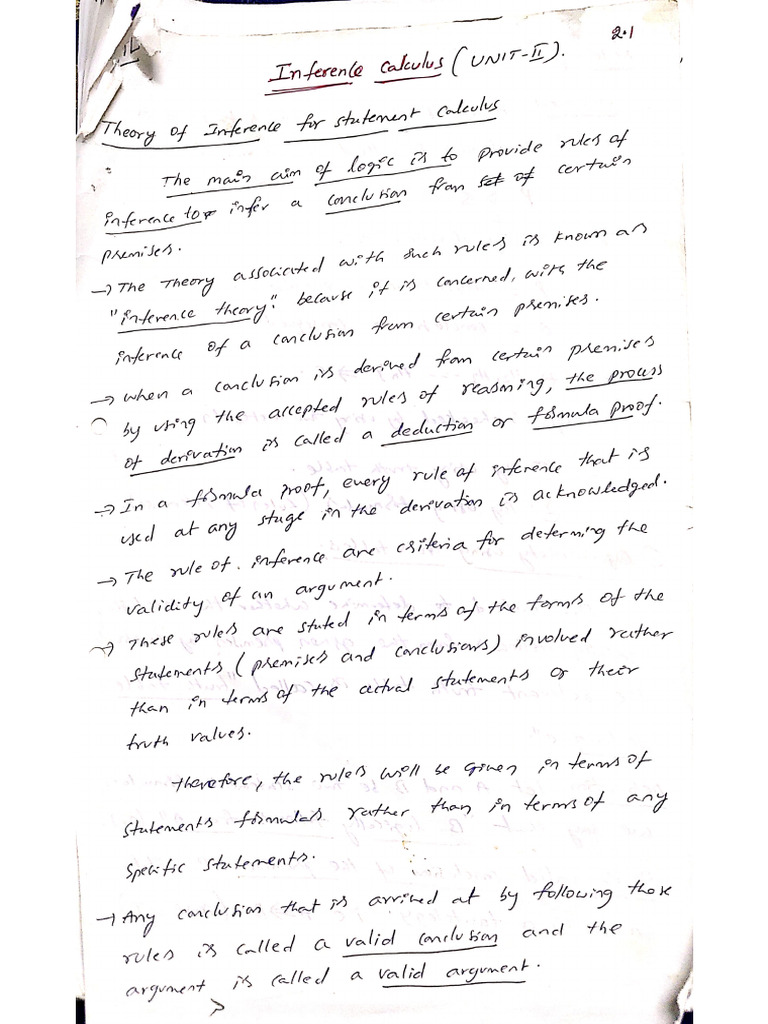 2.1
Inference Calculus (UNIT-II).
Theory of Inference for statement Calculus
The main aim of logic is to provide rules of
inference to infer a conclusion from set of certain
premises.
→ The Theory associated with such rules is known as
"inference theory". because it is concerned, with the
inference of a conclusion from certain premises.
→ When a conclusion is derived from certain premises
by using the accepted rules of reasoning, the process
of derivation is called a deduction or formula proof.
→ In a formula proof, every rule of inference that is
used at any stage in the derivation is acknowledged.
→ The rule of. inference are criteria for determining the
validity of an argument.
→ These rules are stated in terms of the forms of the
statements (premises and conclusions) involved rather
than in terms of the actual statements or their
truth values.
Therefore, the rules will be given in terms of
statements formulas rather than in terms of any
specific statements.
→ Any conclusion that is arrived at by following these
rules is called a valid conclusion and the
argument is called a valid argument.